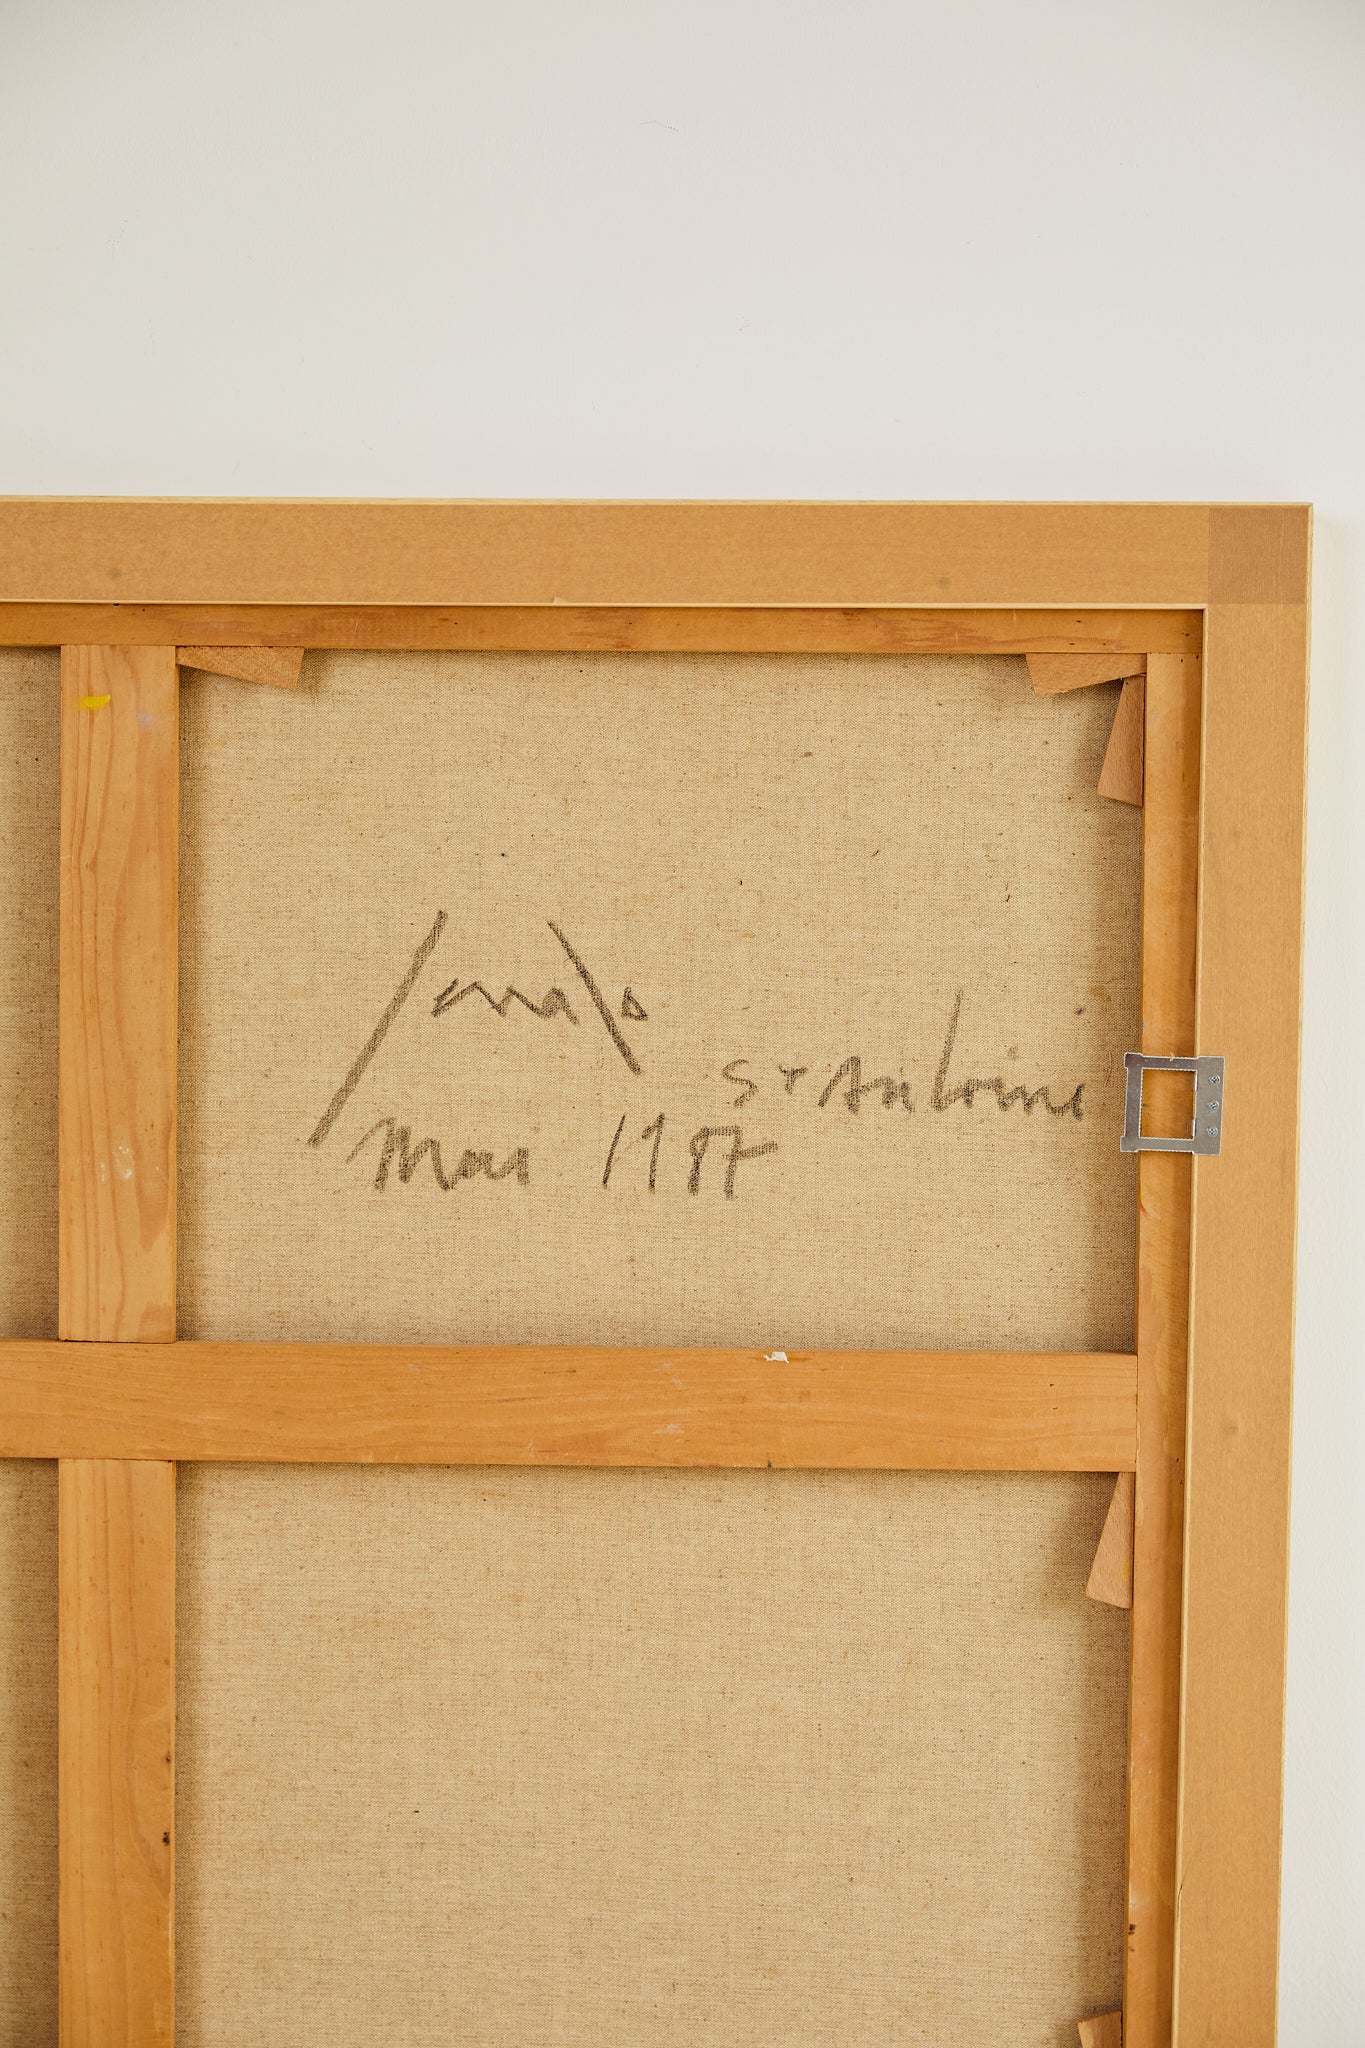 St Antoine
Mai 1987